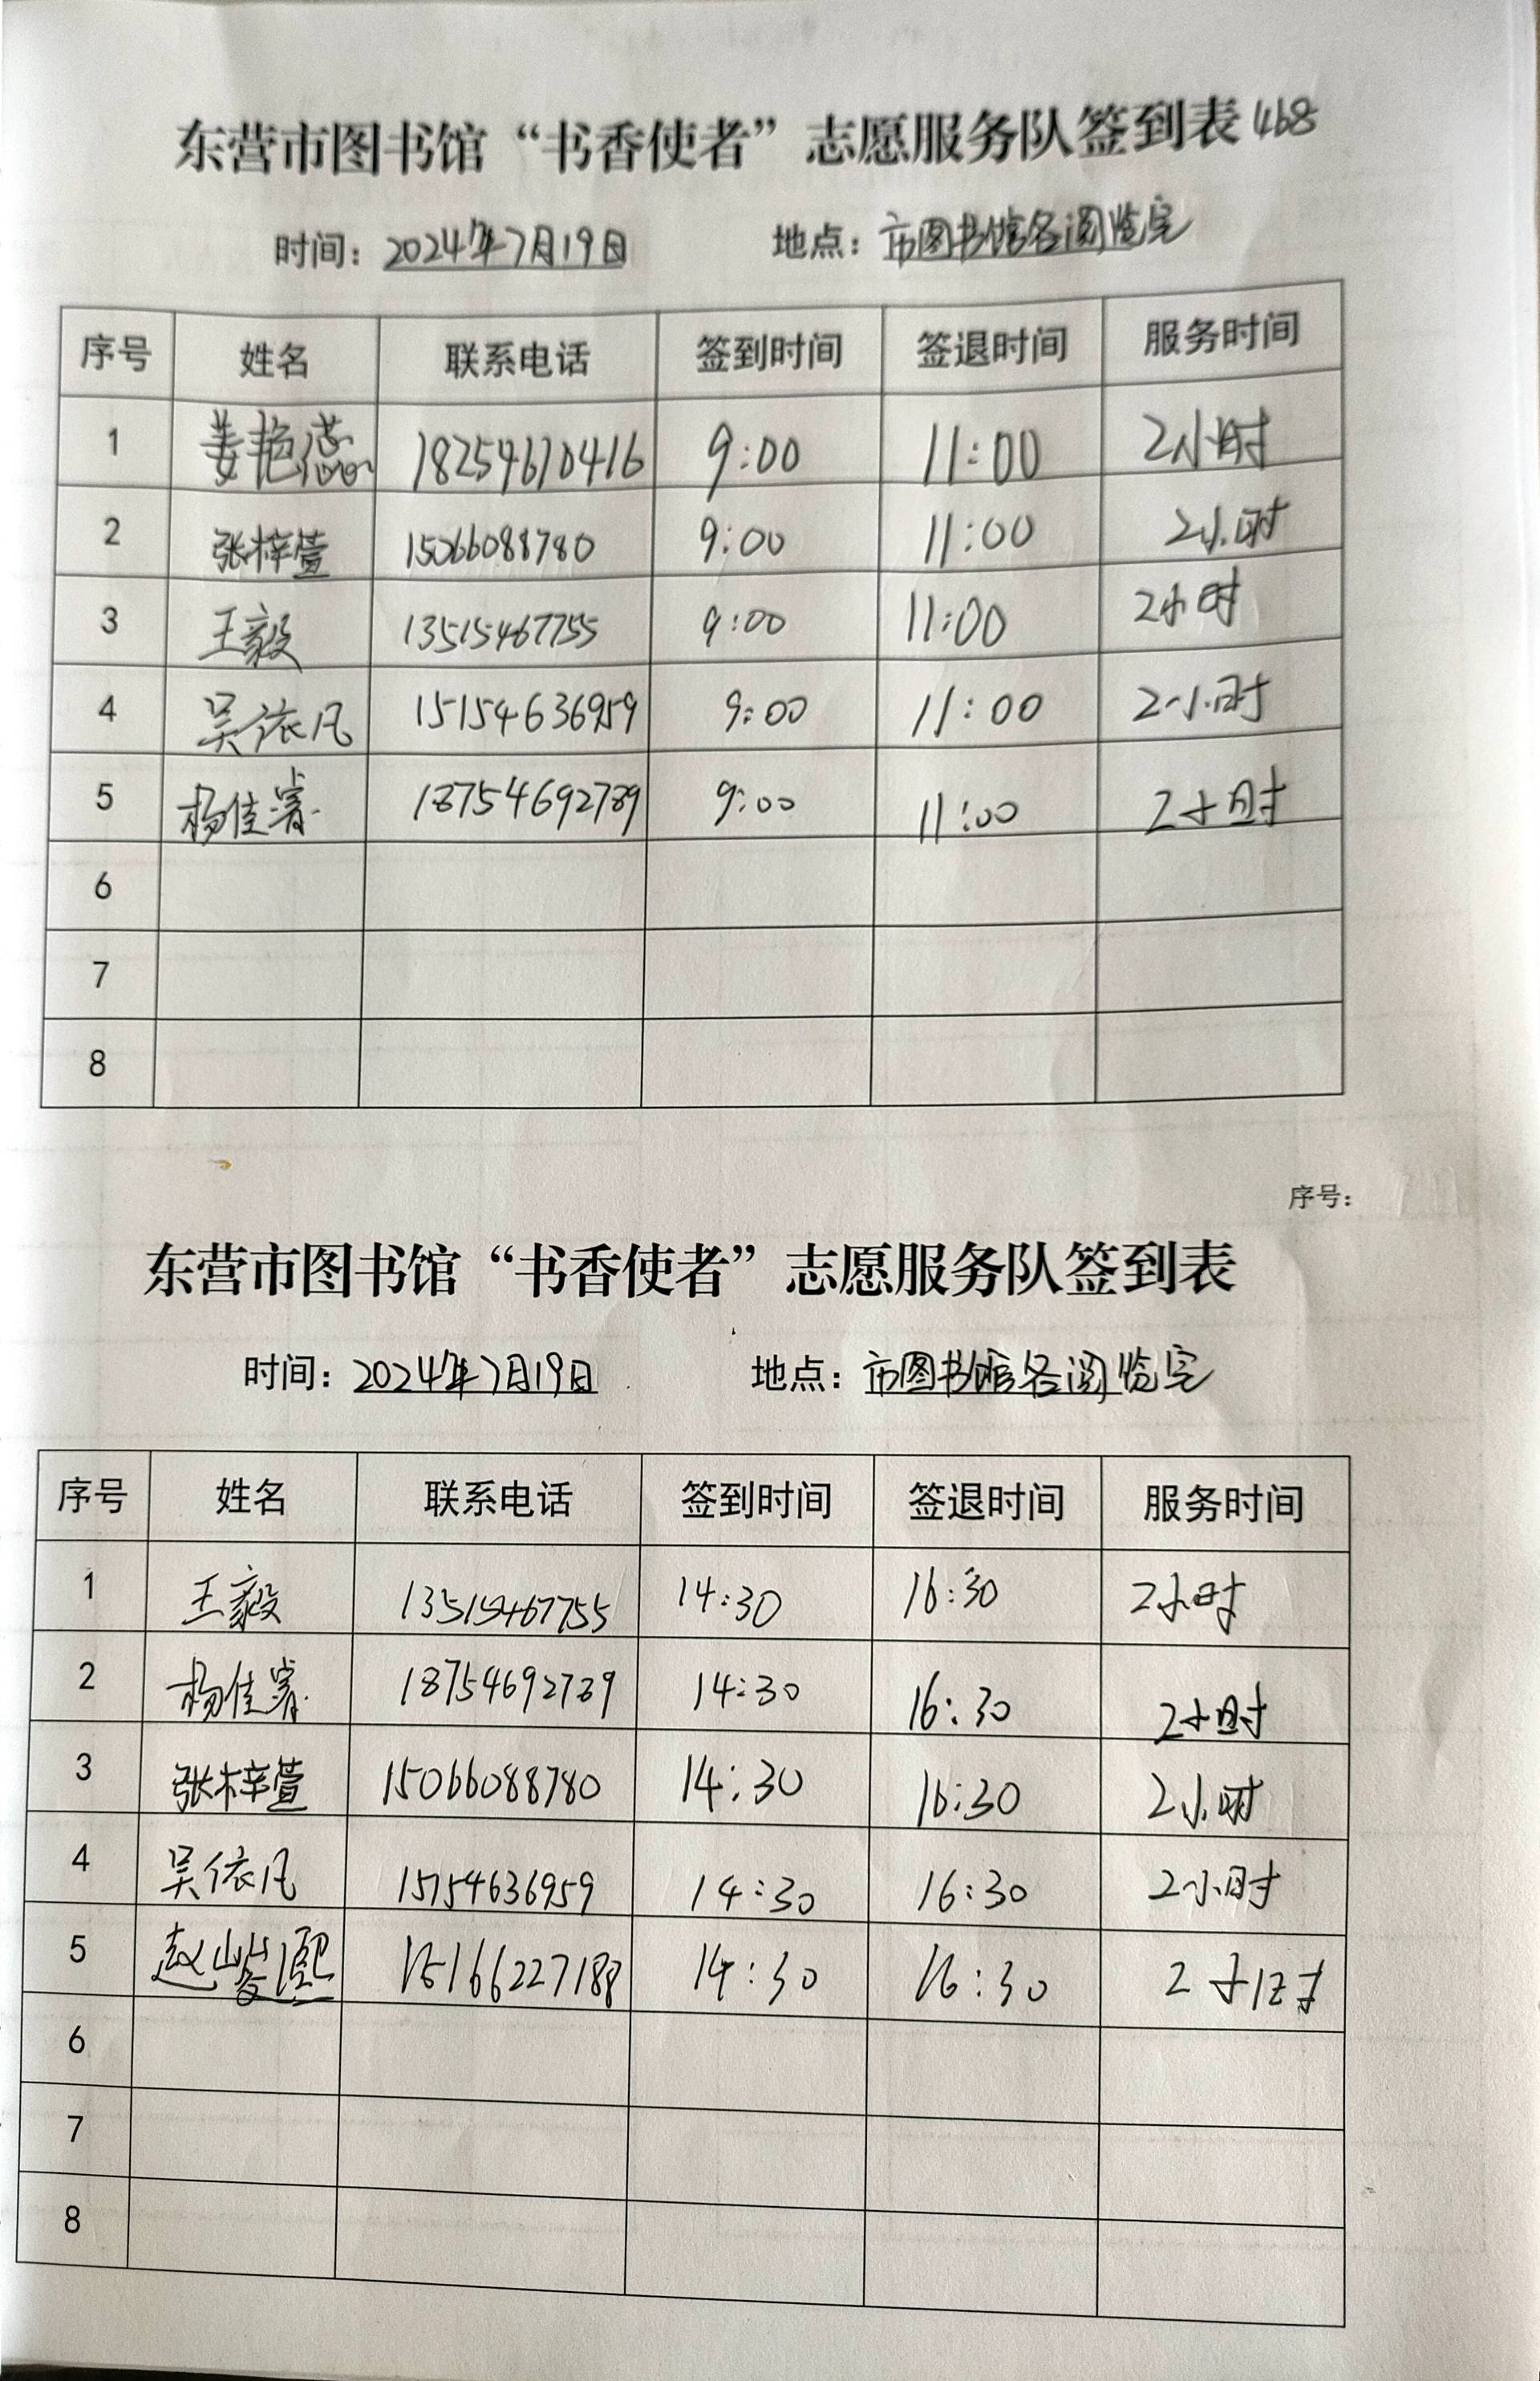 东营市图书馆“书香使者”志愿服务队签到表 468
时间：2024年7月19日 地点：市图书馆各阅览室
序号 姓名 联系电话 签到时间 签退时间 服务时间
1 姜艳蕊 18254610416 9:00 11:00 2小时
2 张梓萱 15066088780 9:00 11:00 2小时
3 王毅 13515467755 9:00 11:00 2小时
4 吴依凡 15154636959 9:00 11:00 2小时
5 杨佳 18754692789 9:00 11:00 2小时
6
7
8
序号：
东营市图书馆“书香使者”志愿服务队签到表
时间：2024年7月19日 地点：市图书馆各阅览室
序号 姓名 联系电话 签到时间 签退时间 服务时间
1 王毅 13515467755 14:30 16:30 2小时
2 杨佳 18754692789 14:30 16:30 2小时
3 张梓萱 15066088780 14:30 16:30 2小时
4 吴依凡 15154636959 14:30 16:30 2小时
5 赵 熙 15166227188 14:30 16:30 2小时
6
7
8